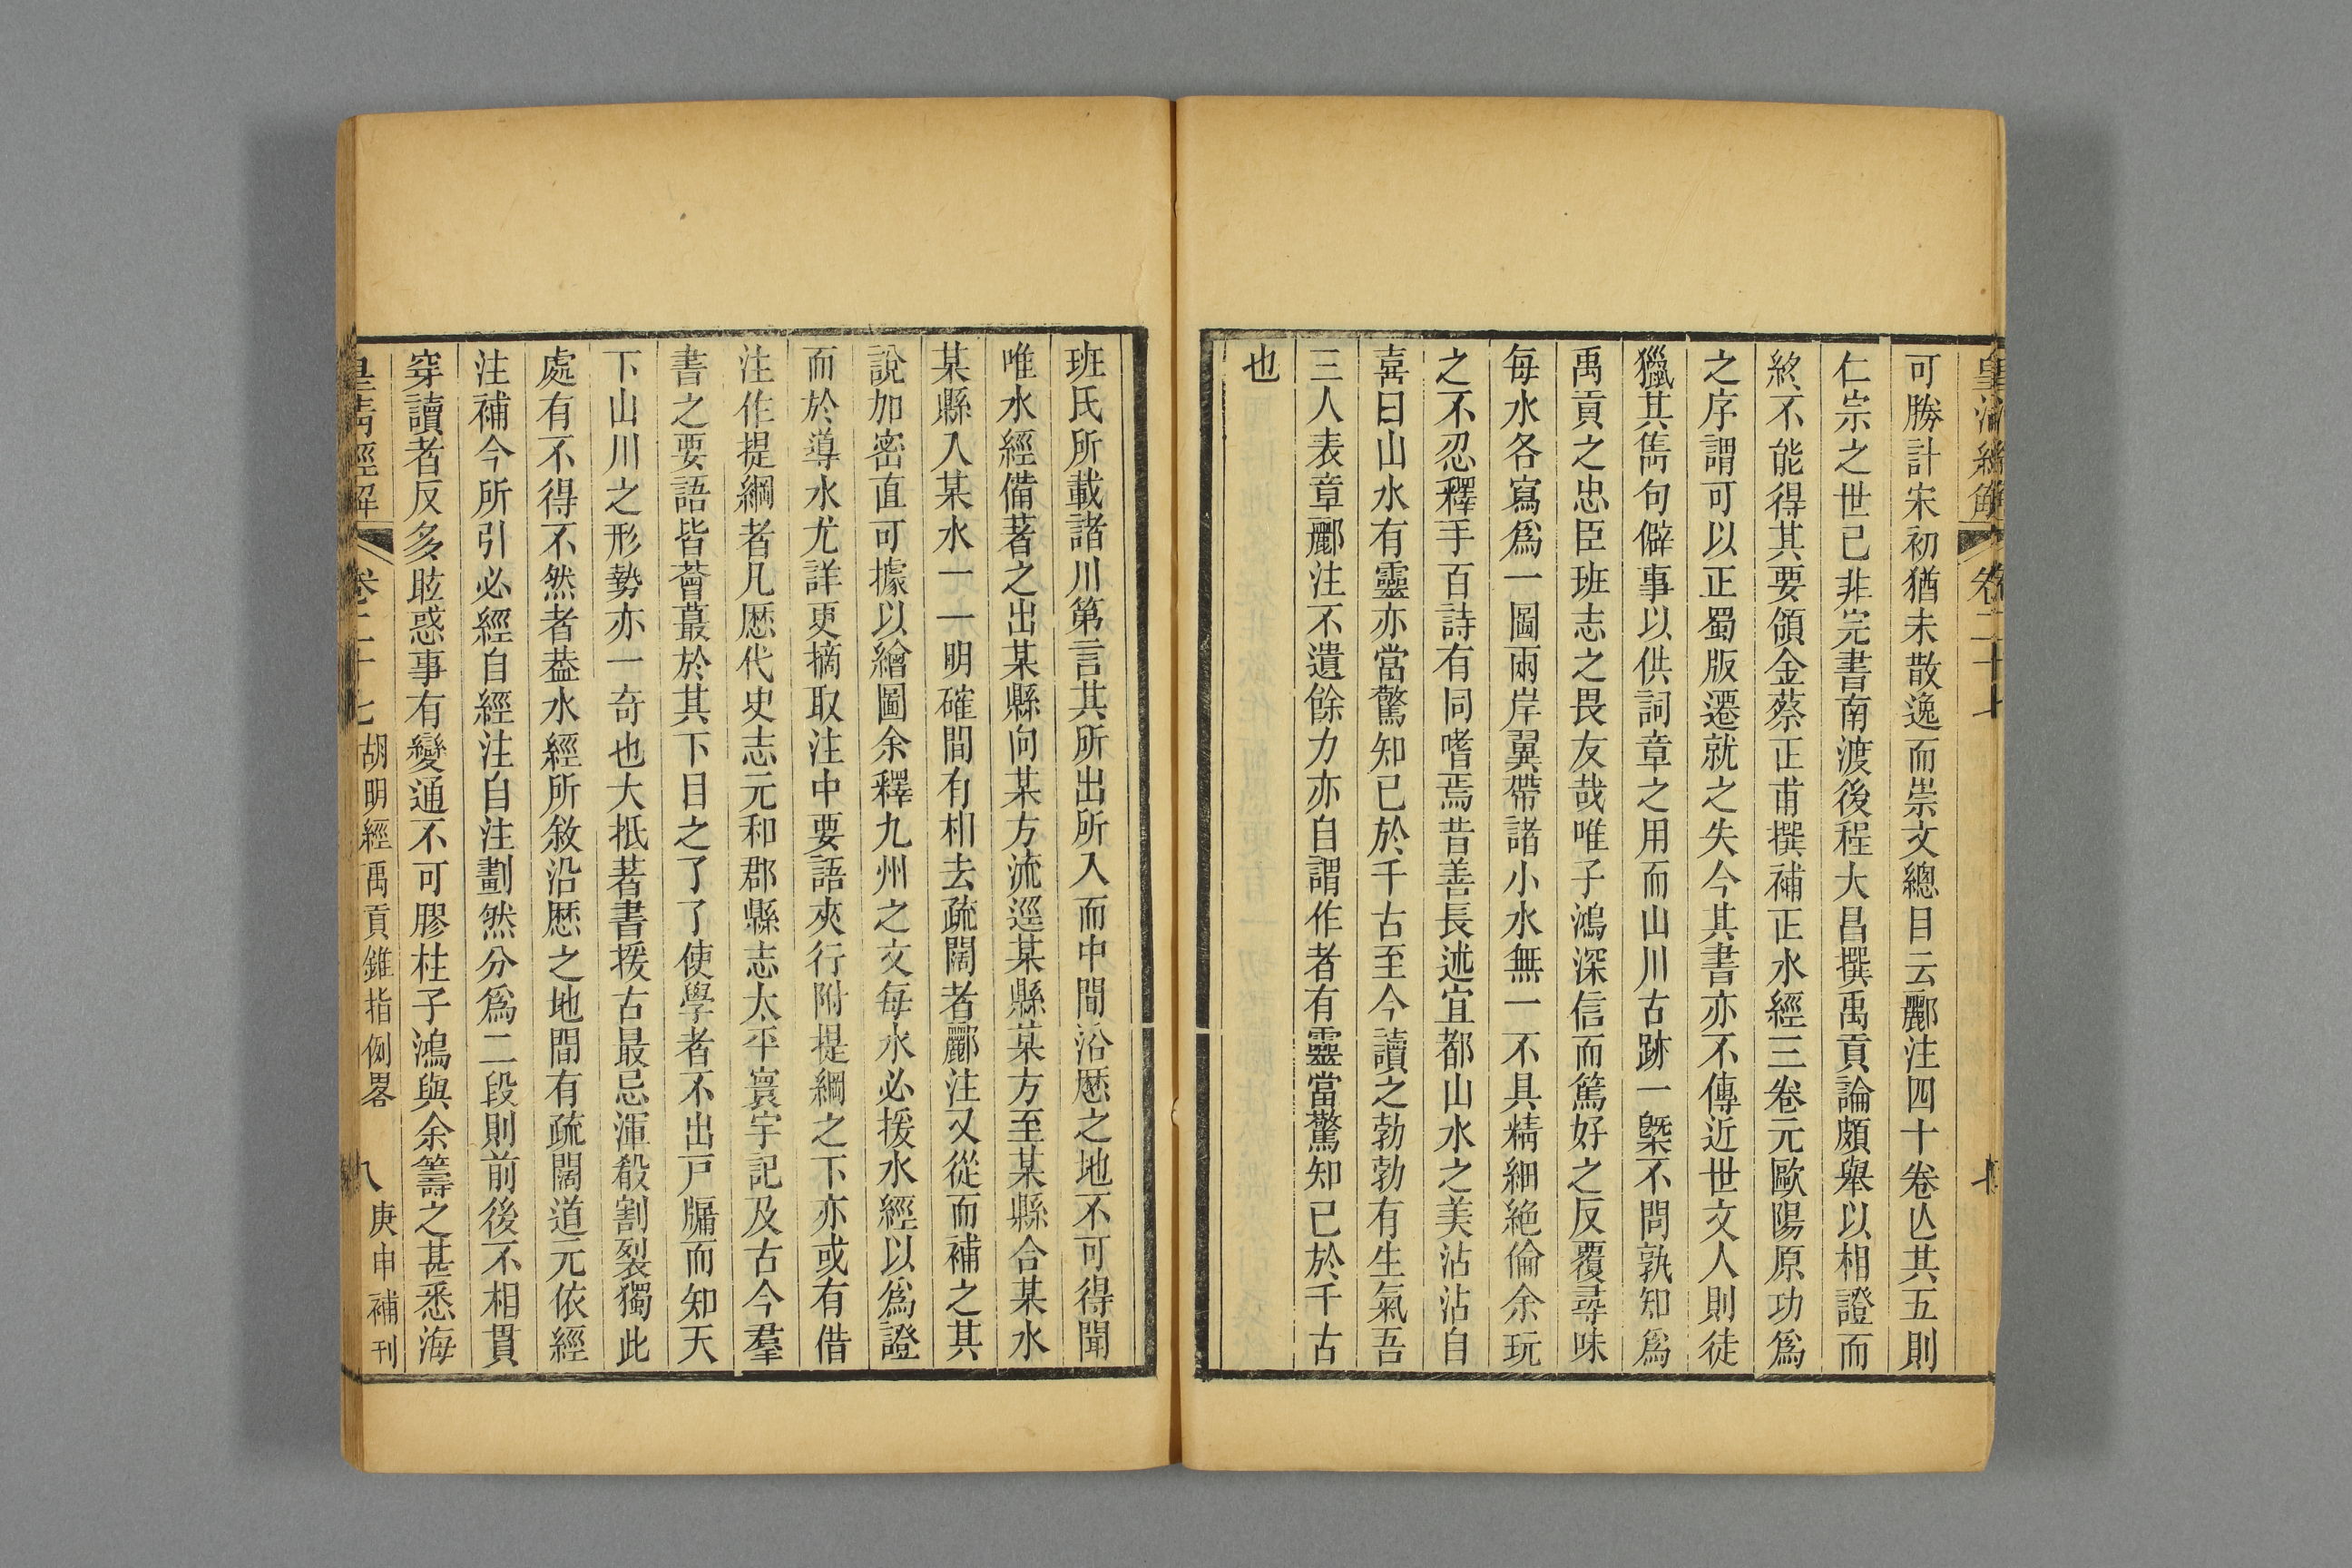 皇清經解
卷二十七
七
可勝計宋初猶未散逸而崇文總目云酈注四十卷亾其五則
仁宗之世已非完書南渡後程大昌撰禹貢論頗舉以相證而
終不能得其要領金蔡正甫撰補正水經三卷元歐陽原功爲
之序謂可以正蜀版遷就之失今其書亦不傳近世文人則徒
獵其雋句僻事以供詞章之用而山川古跡一槩不問孰知爲
禹貢之忠臣班志之畏友哉唯子鴻深信而篤好之反覆尋味
每水各寫爲一圖兩岸翼帶諸小水無一不具精細絶倫余玩
之不忍釋手百詩有同嗜焉昔善長述宜都山水之美沾沾自
喜曰山水有靈亦當驚知已於千古至今讀之勃勃有生氣吾
三人表章酈注不遺餘力亦自謂作者有靈當驚知已於千古
也
班氏所載諸川第言其所出所入而中間沿歷之地不可得聞
唯水經備著之出某縣向某方流逕某縣某方至某縣合某水
某縣入某水一一明確間有相去疏闊者酈注又從而補之其
說加密直可據以繪圖余釋九州之文每水必援水經以爲證
而於導水尤詳更摘取注中要語夾行附提綱之下亦或有借
注作提綱者凡歷代史志元和郡縣志太平寰宇記及古今羣
書之要語皆薈蕞於其下目之了了使學者不出戸牖而知天
下山川之形勢亦一奇也大抵著書援古最忌渾殽割裂獨此
處有不得不然者葢水經所敘沿歷之地間有疏闊道元依經
注補今所引必經自經注自注劃然分爲二段則前後不相貫
穿讀者反多眩惑事有變通不可膠柱子鴻與余籌之甚悉海
皇清經解
卷二十七
胡明經禹貢錐指例畧
八
庚申補刊